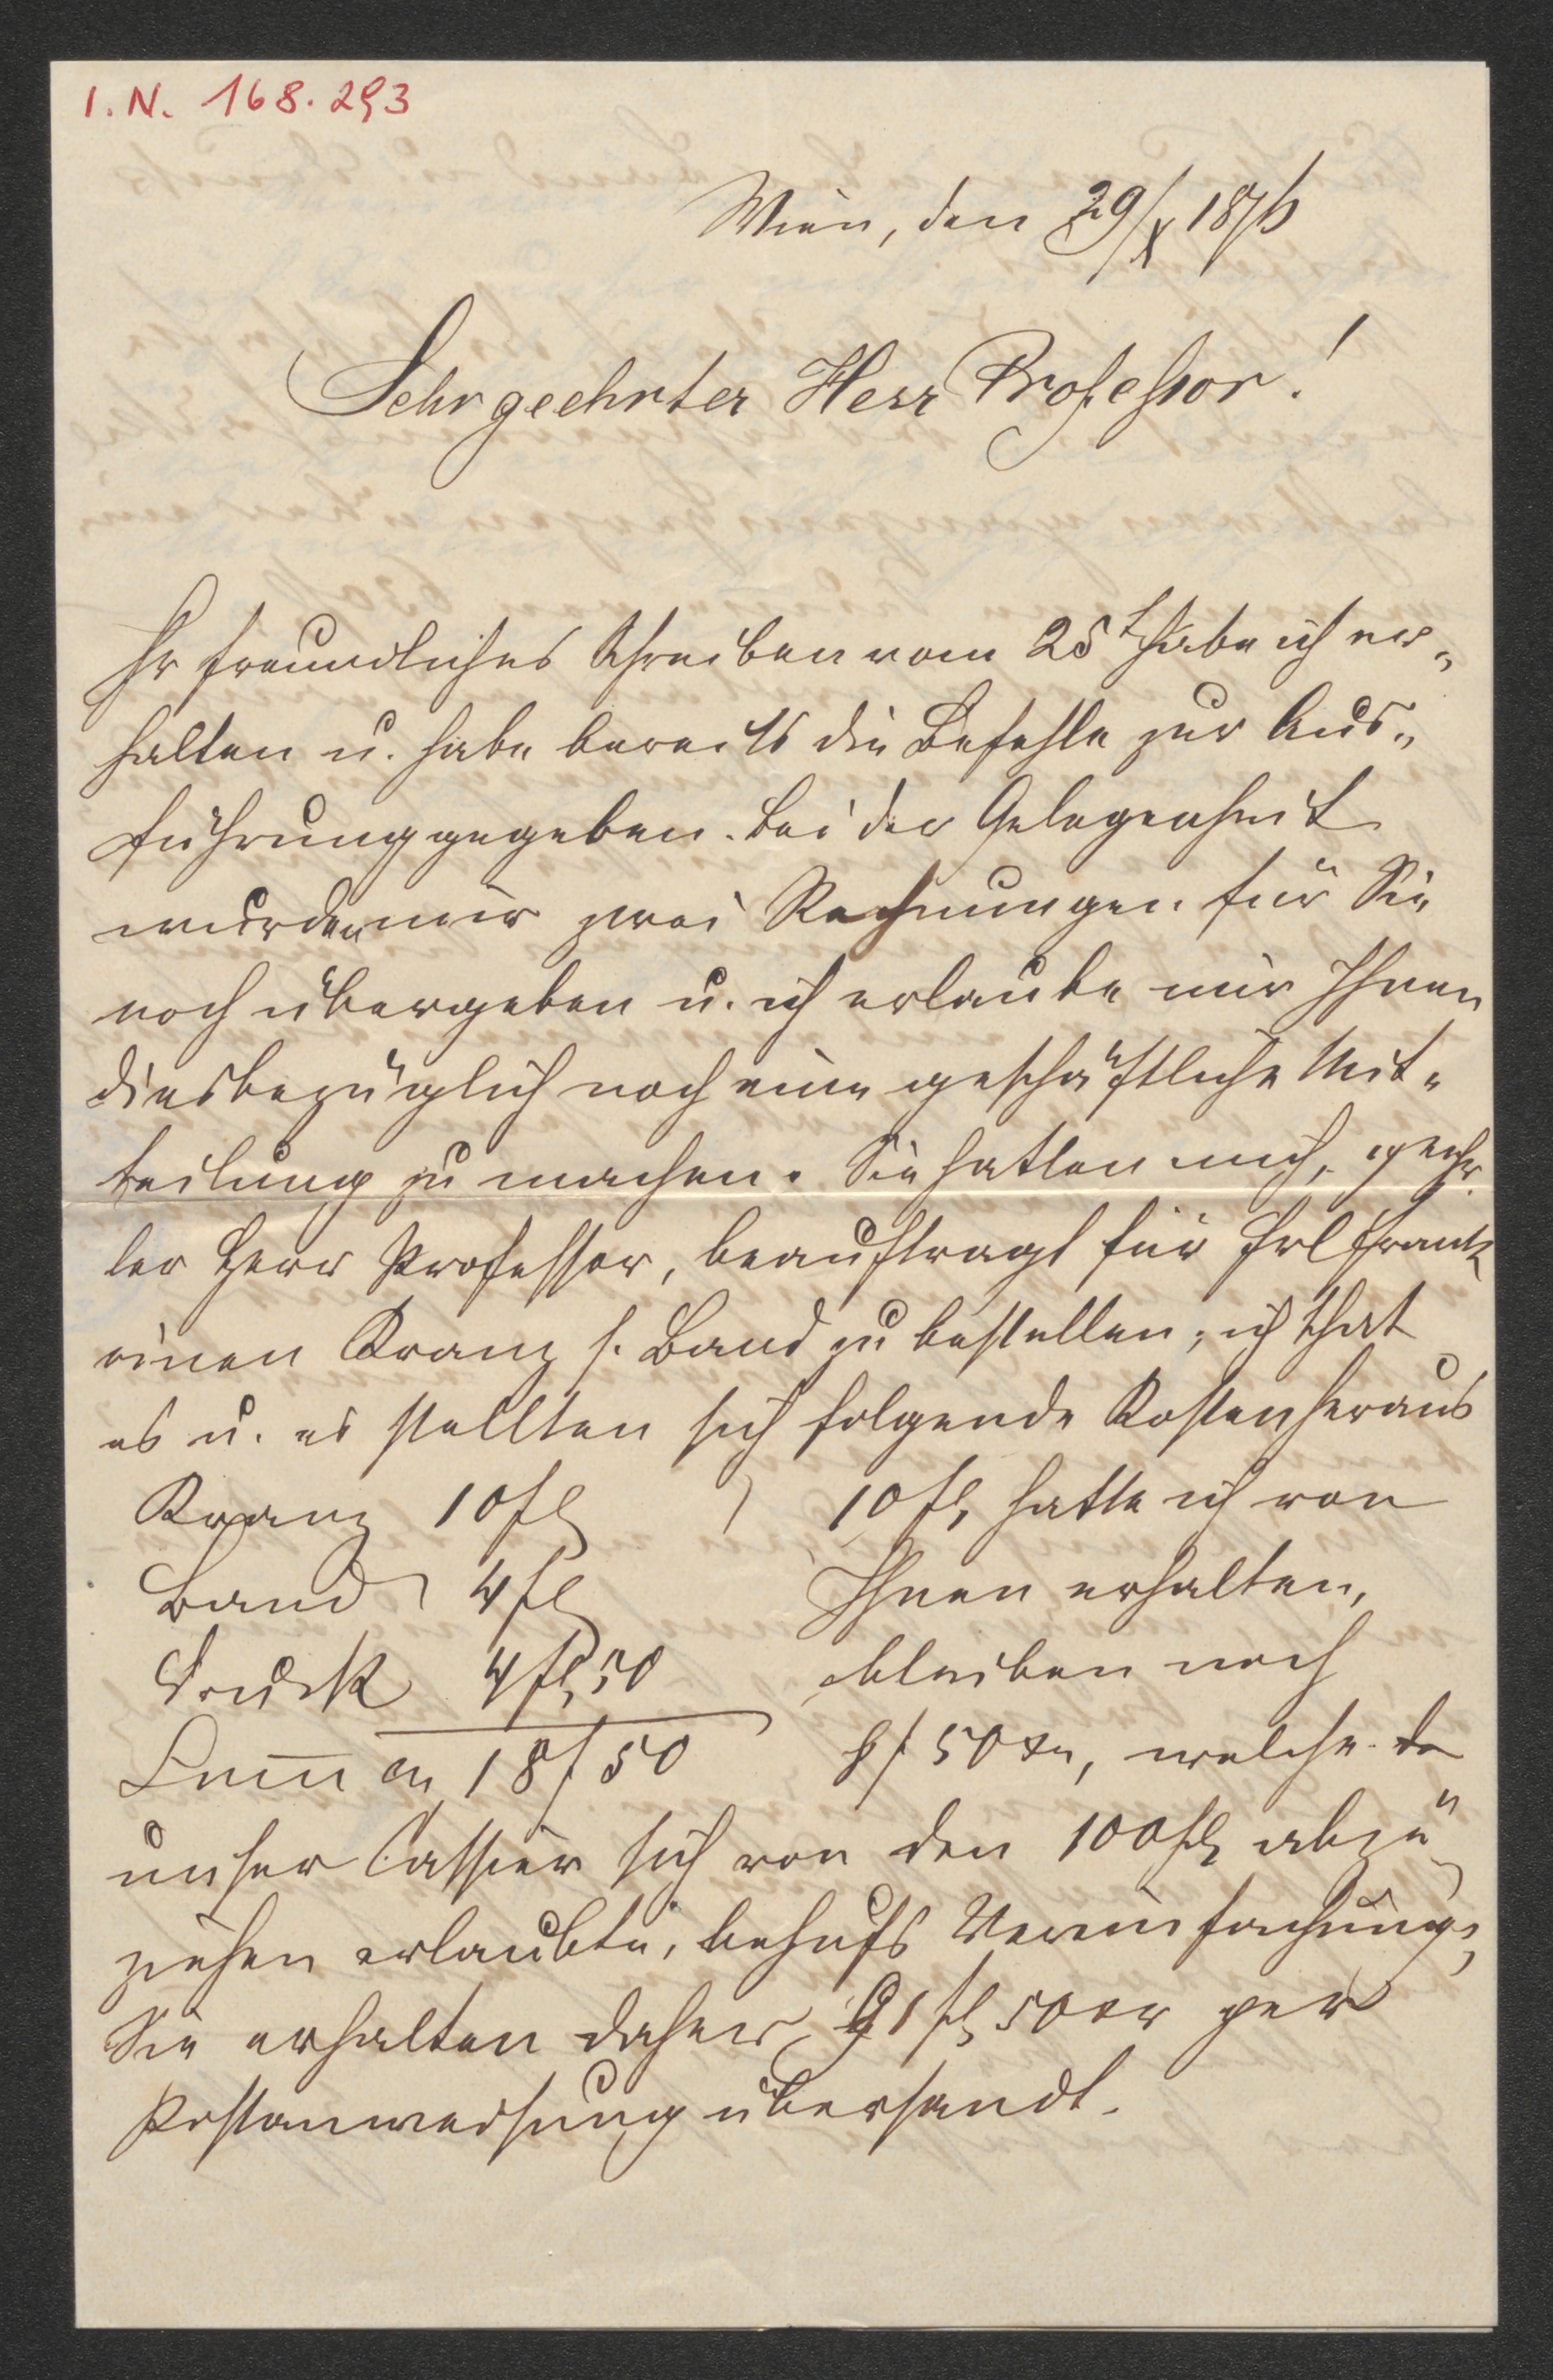 I.N. 168.293
Wien, den 29/X 1876
Sehr geehrter Herr Professor!
Ihr freundliches Schreiben vom 25t habe ich er-
halten u. habe bereits die Befehle zur Aus-
führung gegeben. Bei der Gelegenheit
wurden mir zwei Rechnungen für Sie
noch übergeben u. ich erlaube mir Ihnen
diesbezüglich noch eine geschäftliche Mit-
teilung zu machen. Sie hatten mich, geehr-
ter Herr Professor, beauftragt für Frl Frank
einen Kranz s. Band zu bestellen; ich that
es u. es stellten sich folgende Kosten heraus
Kranz 10 fl
Band 4 fl
Druck 4 fl, 50
Summa 18 f 50
10 fl, hatte ich von
Ihnen erhalten,
bleiben noch
8 f 50 xr, welche
unser Cassier sich von den 100 fl abzu-
ziehen erlaubte, behufs Vereinfachung,
Sie erhalten daher 91 fl 50 xr per
Postanweisung übersandt.